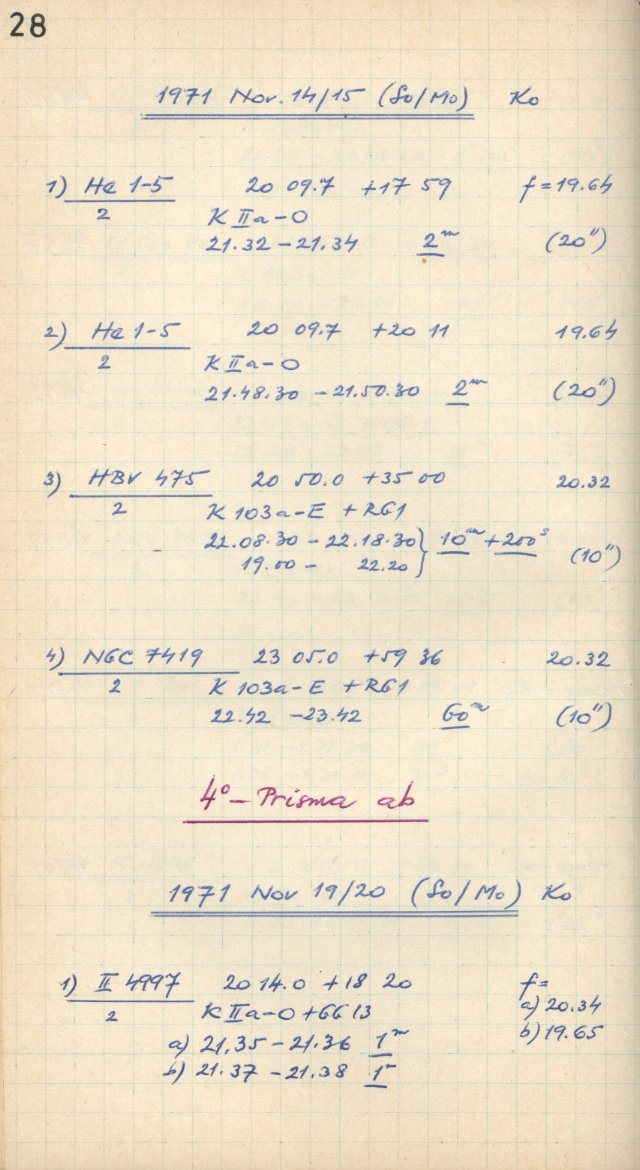 28
1971 Nov. 14/15 (So/Mo) Ko
1) He 1-5 20 09.7 +17 59 f = 19.64
2 K IIa-O
21.32 - 21.34 2m (20")
2) He 1-5 20 09.7 +20 11 19.64
2 K IIa-O
21.48.30 - 21.50.30 2m (20")
3) HBV 475 20 50.0 +35 00 20.32
2 K 103a-E + RG1
22.08.30 - 22.18.30 } 10m + 200s (10")
19.00 - 22.20
4) NGC 7419 23 05.0 +59 36 20.32
2 K 103a-E + RG1
22.42 - 23.42 60m (10")
4° - Prisma ab
1971 Nov 19/20 (So/Mo) Ko
1) II 4997 20 14.0 +18 20 f =
2 K IIa-O + GG13 a) 20.34
a) 21.35 - 21.36 1m b) 19.65
b) 21.37 - 21.38 1m